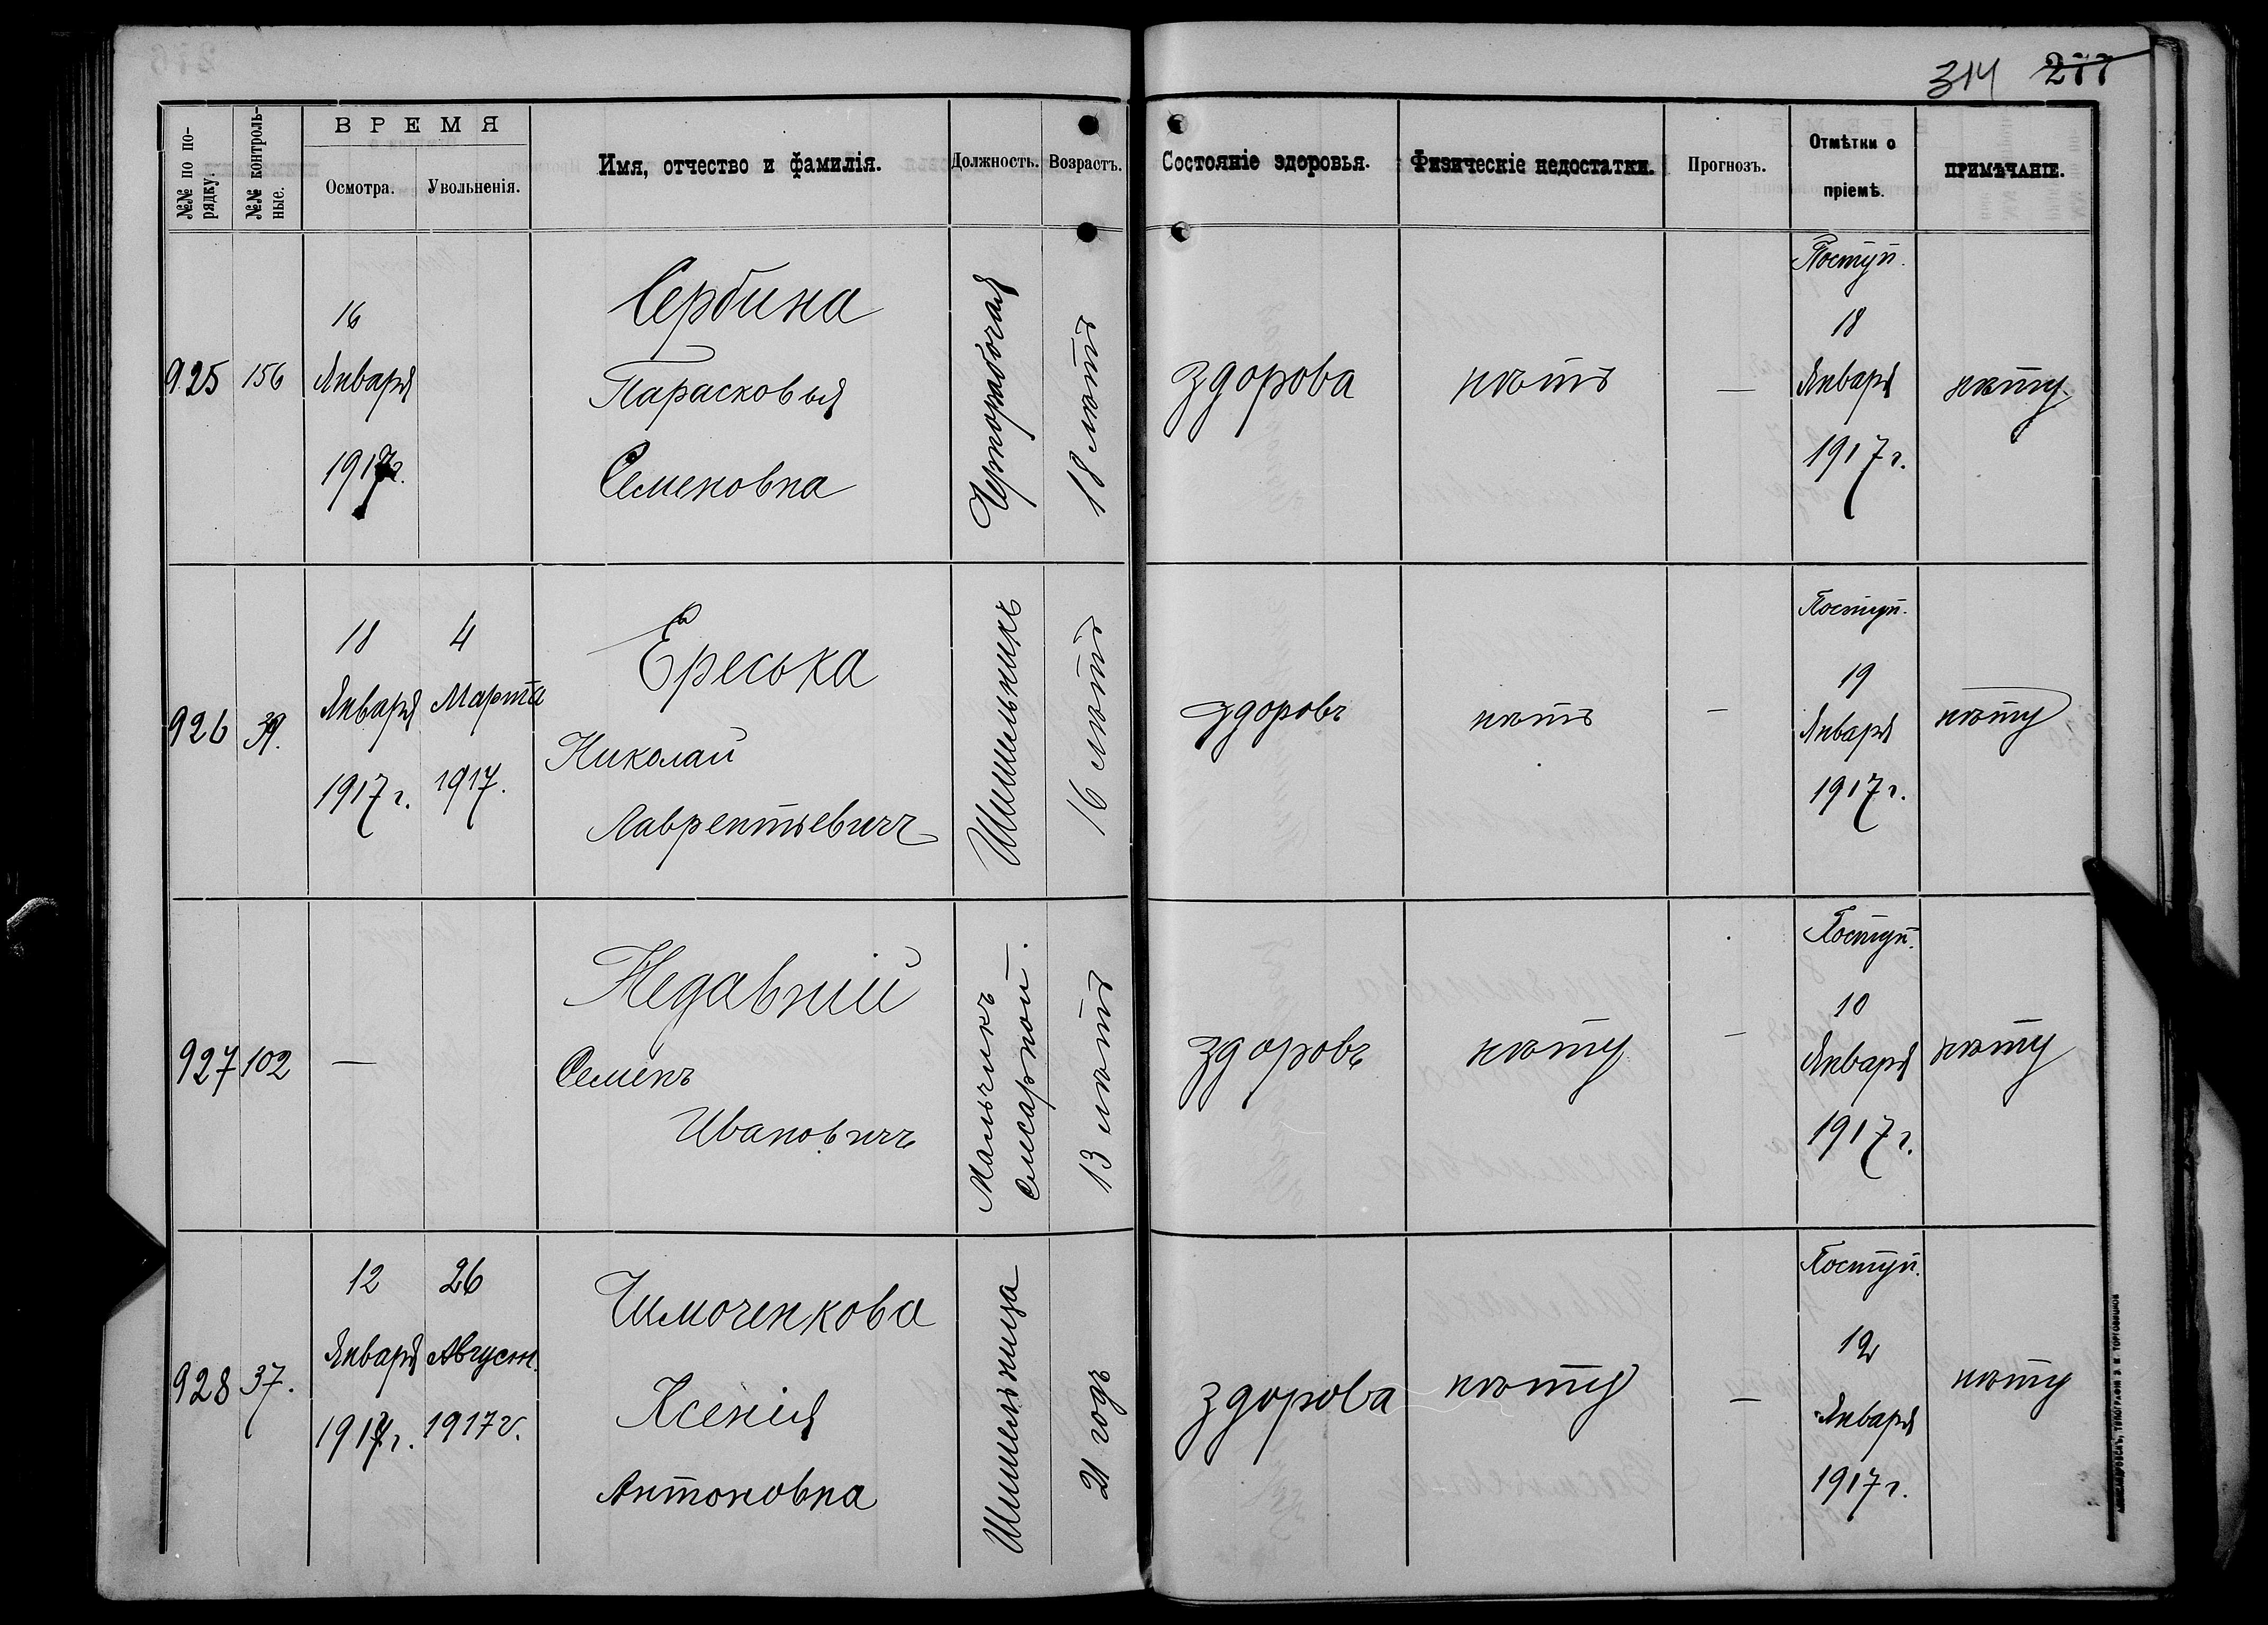 314 277
№№ по по-
рядку.
№№ контроль-
ные.
ВРЕМЯ
Осмотра.
Увольненія.
Имя, отчество и фамилія.
Должность.
Возрастъ.
Состояніе здоровья.
Физическіе недостатки.
Прогнозъ.
Отмѣтки о
пріемѣ.
ПРИМѢЧАНІЕ.
925
156
16
Января
1917г.
Сербина
Парасковья
Семеновна
Чернорабочая
18 лѣтъ
здорова
нѣтъ
—
Поступ.
18
Января
1917 г.
нѣту
926
39.
18
Января
1917 г.
4
Марта
1917.
Ереська
Николай
Лаврентьевичъ
Шишильникъ
16 лѣтъ
здоровъ
нѣтъ
—
Поступ.
19
Января
1917 г.
нѣту
927
102
—
Недавній
Семенъ
Ивановичъ
Мальчикъ
слесарной.
13 лѣтъ
здоровъ
нѣту
—
Поступ.
10
Января
1917 г.
нѣту
928
37.
12
Января
1917 г.
26
Август.
1917 г.
Тимоченкова
Ксенія
Антоновна
Шишельница
21 годъ
здорова
нѣту
—
Поступ.
12
Января
1917 г.
нѣту